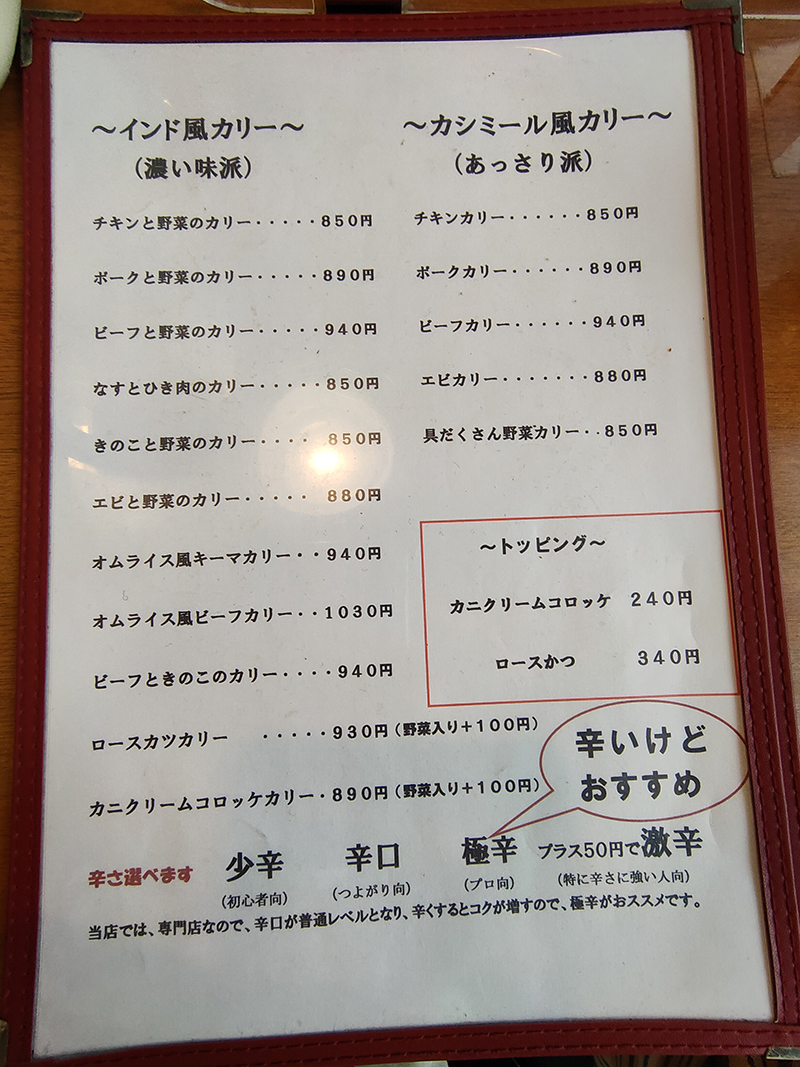 ～インド風カリー～
（濃い味派）
チキンと野菜のカリー・・・・・８５０円
ポークと野菜のカリー・・・・・８９０円
ビーフと野菜のカリー・・・・・９４０円
なすとひき肉のカリー・・・・・８５０円
きのこと野菜のカリー・・・・　８５０円
エビと野菜のカリー・・・・・　８８０円
オムライス風キーマカリー・・９４０円
オムライス風ビーフカリー・・１０３０円
ビーフときのこのカリー・・・・９４０円
ロースカツカリー　・・・・・９３０円（野菜入り＋１００円）
カニクリームコロッケカリー・８９０円（野菜入り＋１００円）
～カシミール風カリー～
（あっさり派）
チキンカリー・・・・・・８５０円
ポークカリー・・・・・・８９０円
ビーフカリー・・・・・・９４０円
エビカリー・・・・・・・８８０円
具だくさん野菜カリー・・８５０円
～トッピング～
カニクリームコロッケ　２４０円
ロースかつ　３４０円
辛いけど
おすすめ
辛さ選べます　少辛　辛口　極辛　プラス50円で激辛
（初心者向）　（つよがり向）　（プロ向）　（特に辛さに強い人向）
当店では、専門店なので、辛口が普通レベルとなり、辛くするとコクが増すので、極辛がおススメです。